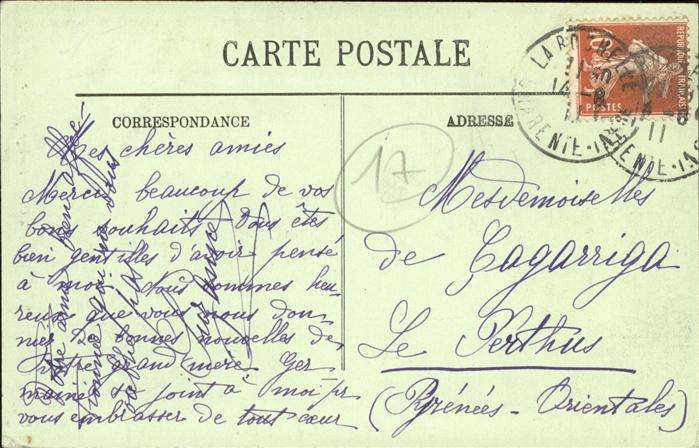 CARTE POSTALE
CORRESPONDANCE
ADRESSE
Mes chères amies
Merci beaucoup de vos
bons souhaits Vous êtes
bien gentilles d'avoir pensé
à moi Nous sommes heu-
reux que vous nous don-
niez de bonnes nouvelles de
votre grand'mère Ger
maine se joint à moi pr
vous embrasser de tout cœur
17
Mesdemoiselles
de Çagarriga
Le Perthus
(Pyrénées-Orientales)
10
REPUBLIQUE FRANÇAISE
POSTES
LA ROCHELLE
11